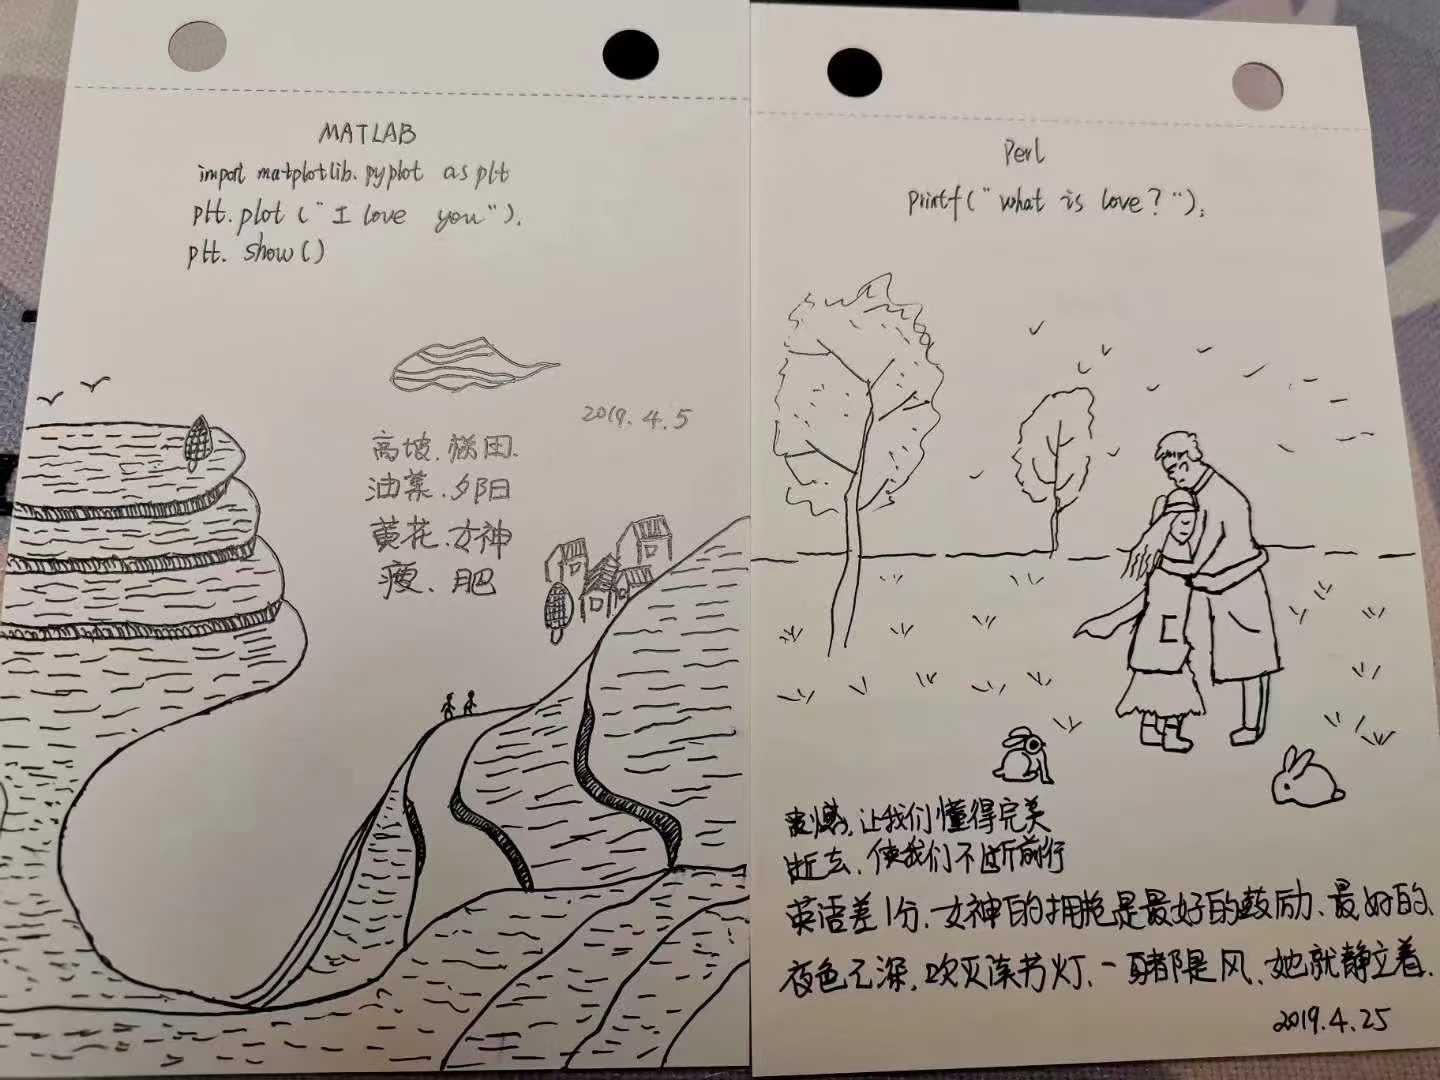 MATLAB
import matplotlib.pyplot as plt
plt.plot("I love you").
plt. show()
2019.4.5
高坡.梯田.
油菜.夕阳
黄花.女神
瘦、肥
Perl
printf("what is love?");
遗憾,让我们懂得完美
逝去,使我们不断前行
英语差1分,女神的拥抱是最好的鼓励、最好的、
夜色已深,吹灭读书灯,一身都是风、她就静立着.
2019.4.25